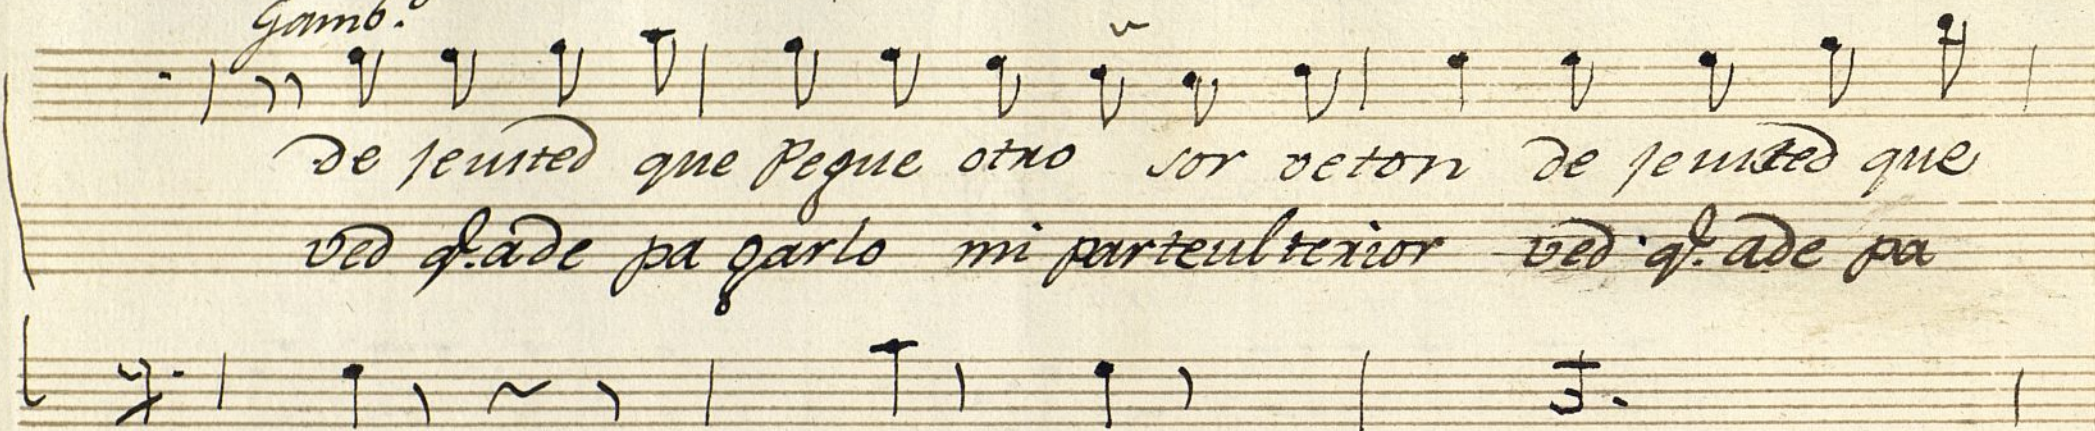 Gamb.º
de jeusted que Pegue otro sor veton de jeusted que
ved q.e ade pa garlo mi parteulterior ved q.e ade pa